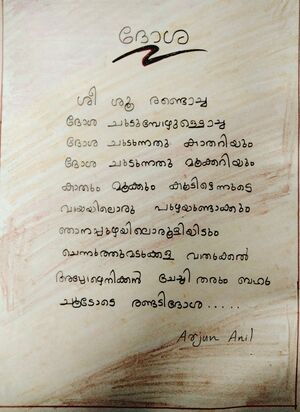 ദോശ
ശീ ശൂ രണ്ടൊച്ച
ദോശ ചുടുമ്പോഴുള്ളൊച്ച
ദോശ ചുടുന്നതു കാതറിയും
ദോശ ചുടുന്നതു മൂക്കറിയും
കാതും മൂക്കും കൂടിച്ചെന്നുടെ
വായയിലൊരു പുഴയുണ്ടാക്കും
ഞാനാപ്പുഴയിലൊരൂളിയിടും
ചെന്നെത്തുമടുക്കള വാതുക്കൽ
അപ്പോഴെനിക്കൻ ചേച്ചി തരും ബഹു
ചൂടോടെ രണ്ടടിദോശ.....
Arjun Anil